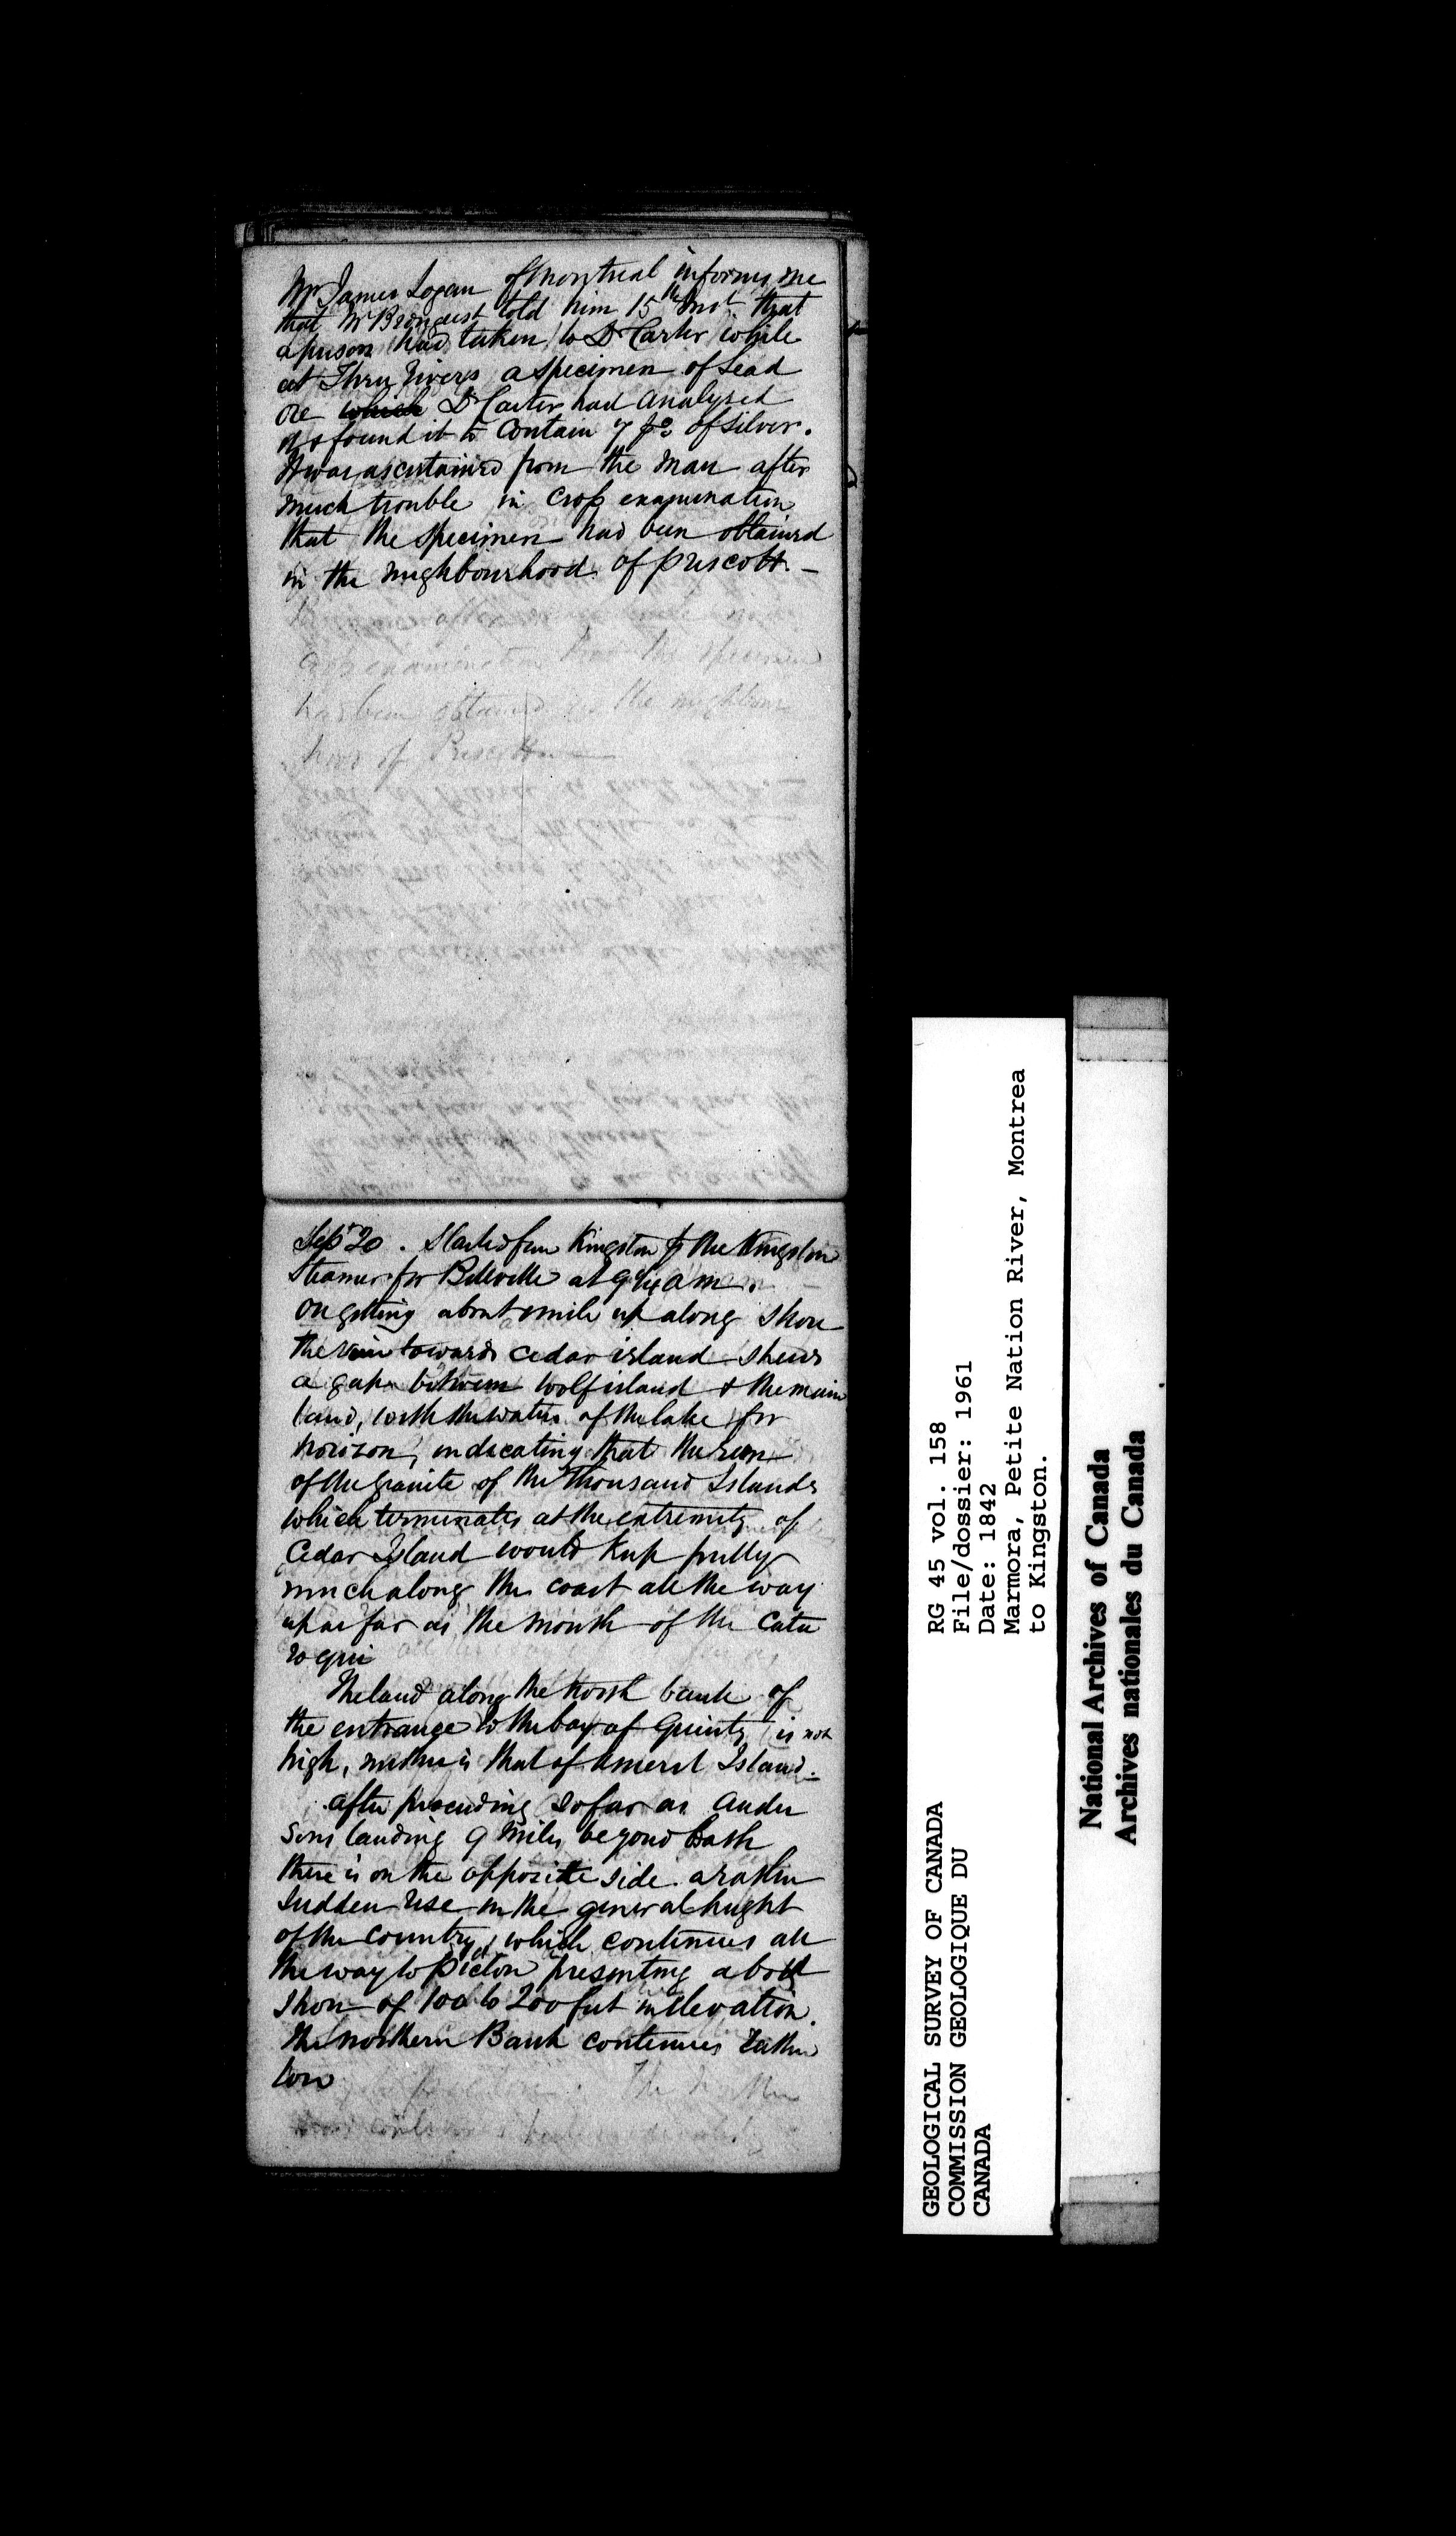 Mr James Logan of Montreal informs me
that Mr told him 15th Inst. that
a person had taken to Dr Carter while
at Three Rivers a specimen of Lead
ore which Dr Carter had analysed
& found it to contain 7 pc of silver.
It was ascertained from the man after
much trouble in cross examination
that the specimen had been obtained
in the neighbourhood of Prescott. —
cross examination that the specimen
has been obtained in the neighbour
hood of Prescott
Sept 20. Started from Kingston by the Kingston
Steamer for Belleville at 9 1/4 a m.
On getting about a mile up along shore
the view towards Cedar island shews
a gap between Wolf island & the main
land, with the water of the lake for
horizon, indicating that the run
of the granite of the Thousand Islands
which terminates at the extremity of
Cedar Island would keep pretty
much along the coast all the way
up as far as the mouth of the Cata
roqui
The land along the North bank of
the entrance to the bay of Quinty is not
high, neither is that of Amerst Island.
After proceeding so far as Ander
sons landing 9 miles beyond Bath
there is on the opposite side a rather
sudden rise in the general height
of the country, which continues all
the way to Picton presenting a bold
shore of 100 to 200 feet in elevation.
The northern Bank continues rather
low
The Northern
continues
RG 45 vol. 158
File/dossier: 1961
Date: 1842
Marmora, Petite Nation River, Montrea
to Kingston.
GEOLOGICAL SURVEY OF CANADA
COMMISSION GEOLOGIQUE DU
CANADA
National Archives of Canada
Archives nationales du Canada